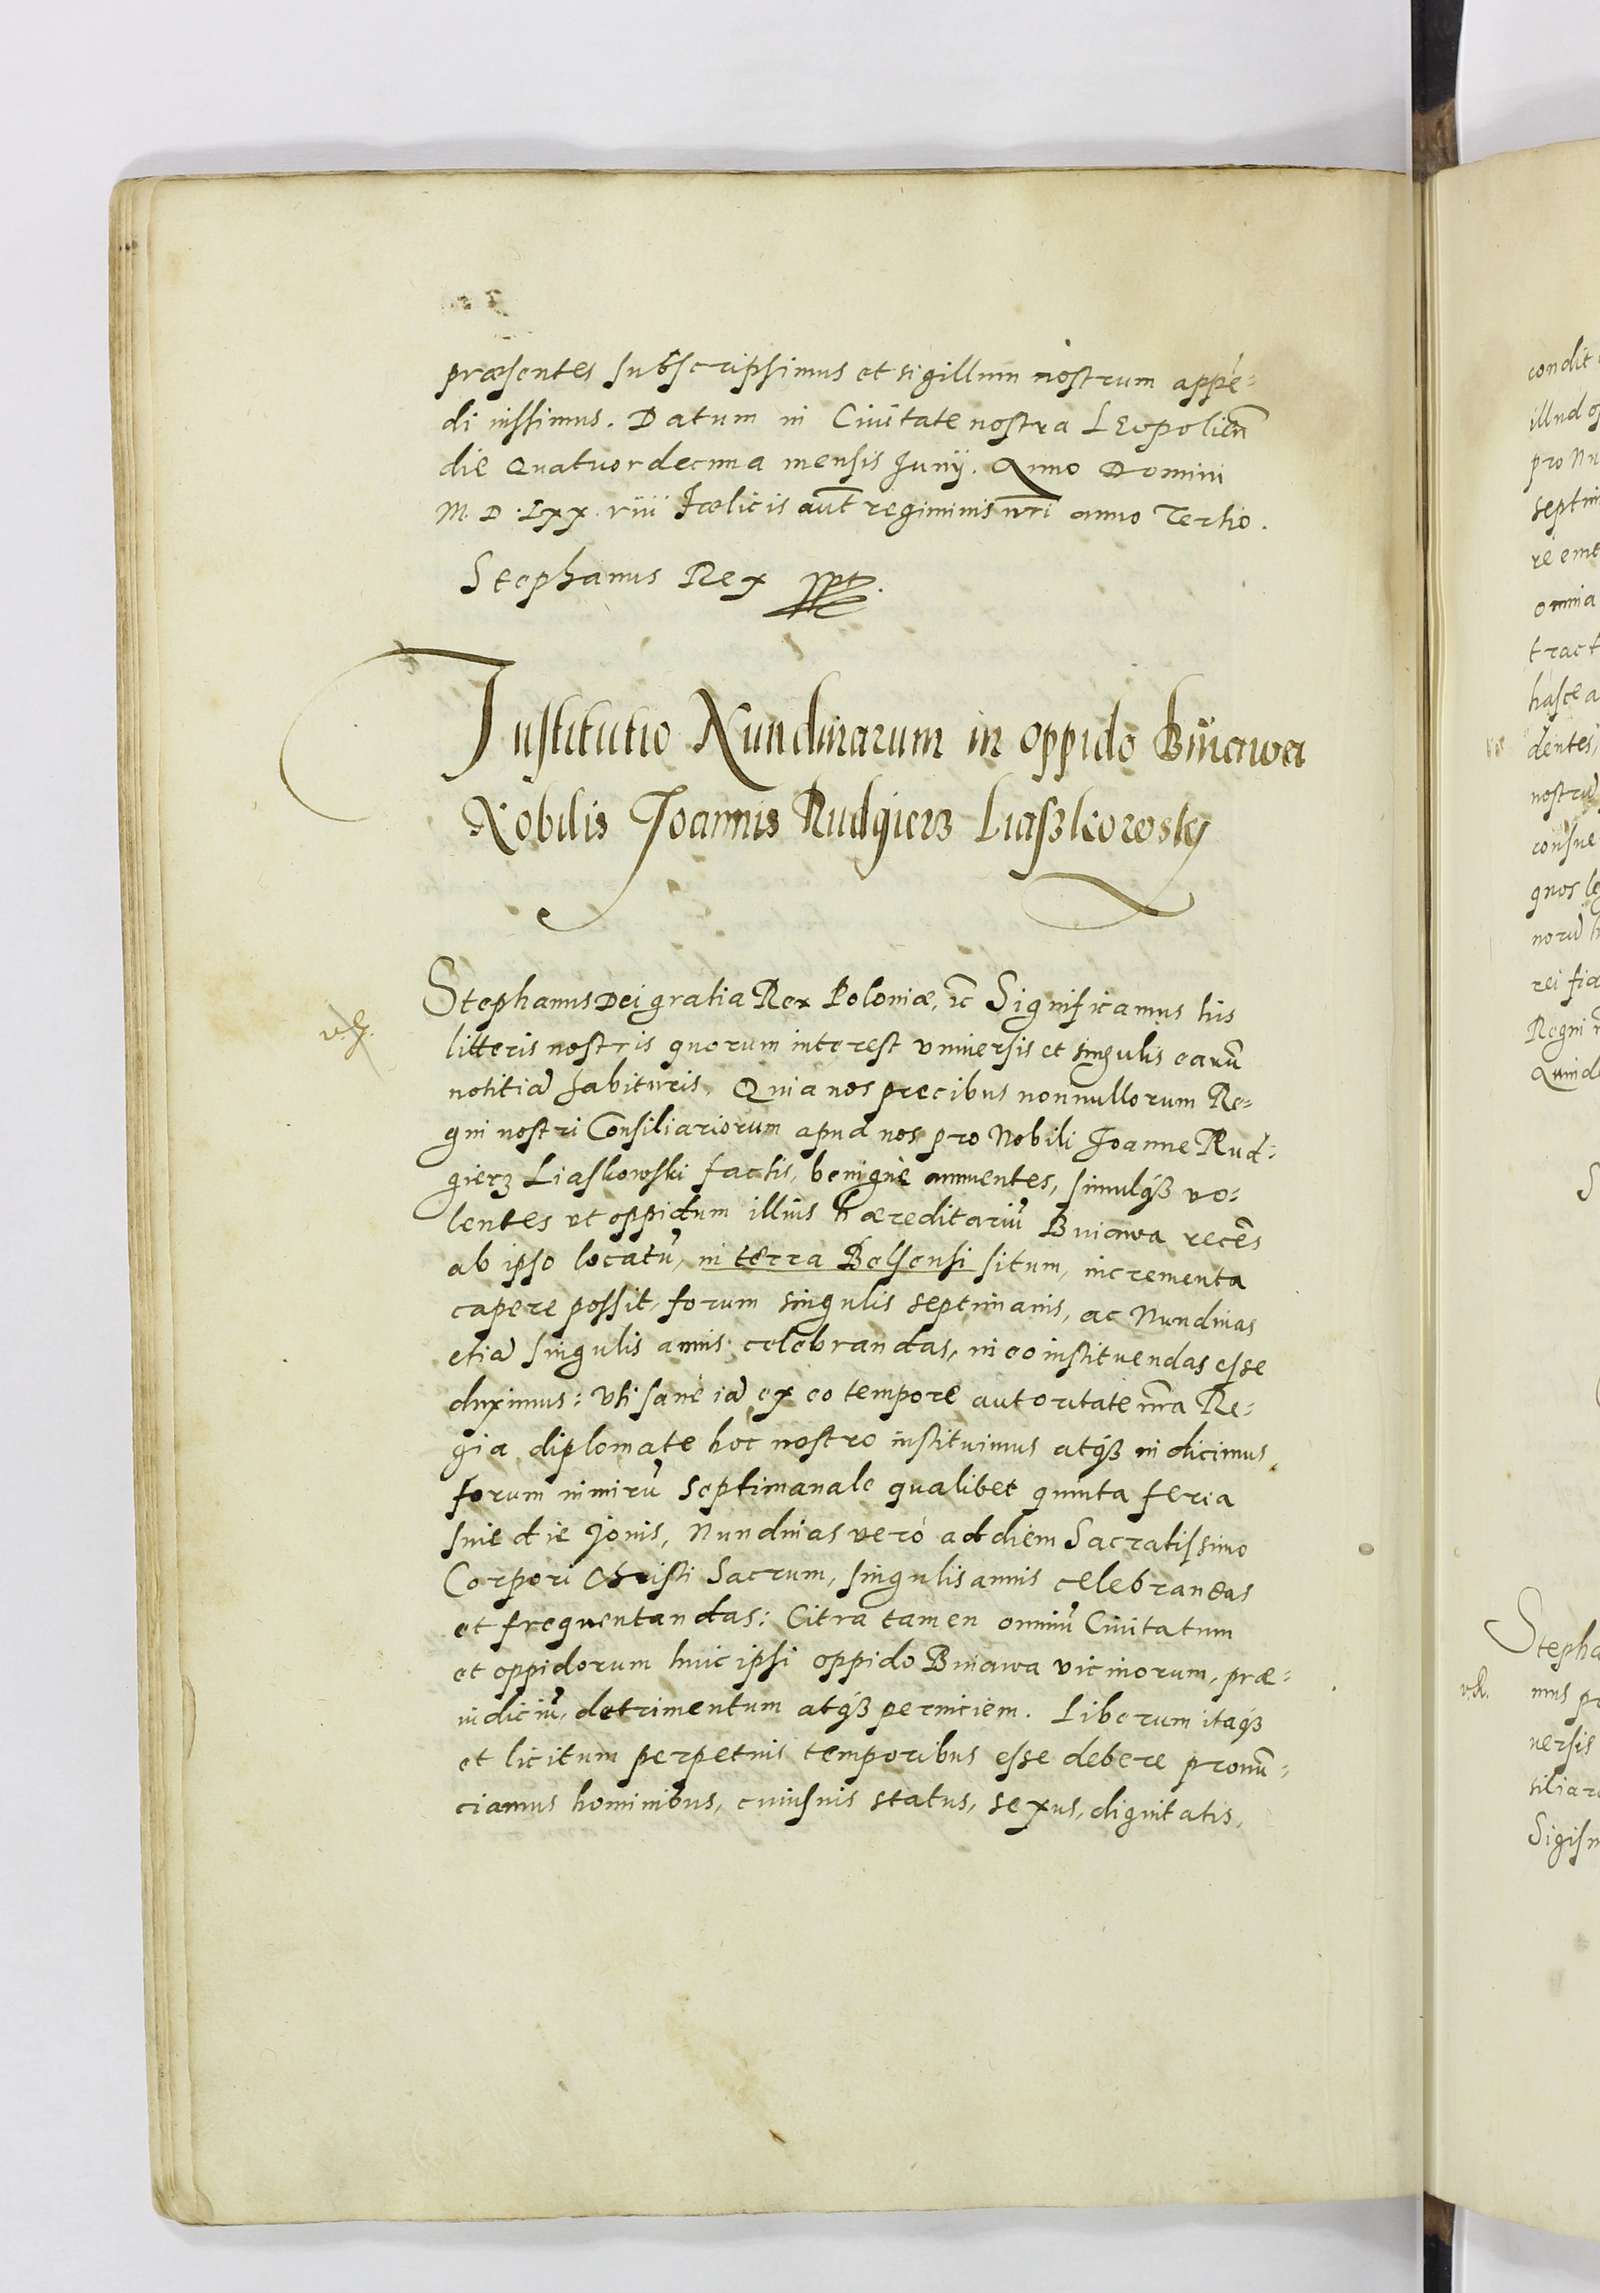 præsentes subscripsimus et sigillum nostrum appē=
di iussimus. Datum in Ciuitate nostra Leopolieñ
die Quatuordecima mensis Junij. Anno Domini
M. D. Lxx viii Fœlicis aut̃ regiminis nr̃i anno Tertio.
Stephanus Rex sspt.
Institutio Nundinarum in oppido Buiawa
Nobilis Joannis Rudgierz Liaszkowsky
Stephanus Dei gratia Rex Poloniæ, ꝛc Significamus his
litteris nostris quorum interest vniuersis et singulis earũ
notitiã habituris. Quia nos precibus nonnullorum Re=
gni nostri Consiliariorum apud nos pro Nobili Joanne Rud=
gierz Liaskowski factis, benignè annuentes, simulqꝫ vo=
lentes vt oppidum illius hæreditariũ Buiawa recẽs
ab ipso locatũ, in terra Belsensi situm, incrementa
capere possit, forum singulis septimanis, ac Nundinas
etiã singulis annis celebrandas, in eo instituendas esse
duximus: Vti sanè iã ex eo tempore autoritate nr̃a Re=
gia diplomate hoc nostro instituimus atqꝫ indicimus,
forum nimirũ septimanale qualibet quinta feria
siue die Jouis, Nundinas verò ad diem Sacratissimo
Corpori Christi Sacrum, singulis annis celebrandas
et frequentandas: Citra tamen omniũ Ciuitatum
et oppidorum huic ipsi oppido Buiawa vicinorum, præ=
iudiciũ, detrimentum atqꝫ perniciem. Liberum itaqꝫ
et licitum perpetuis temporibus esse debere pronũ=
ciamus hominibus, cuiusuis status, sexus, dignitatis,
condit
illud
pro Nu
septim
re eme
omnia
tract
hasce a
dentes,
nostrũ
consue
quos le
norũ
rei fia
Regni
Quind
S
Stepha
mus pr
uersis
siliar
Sigism